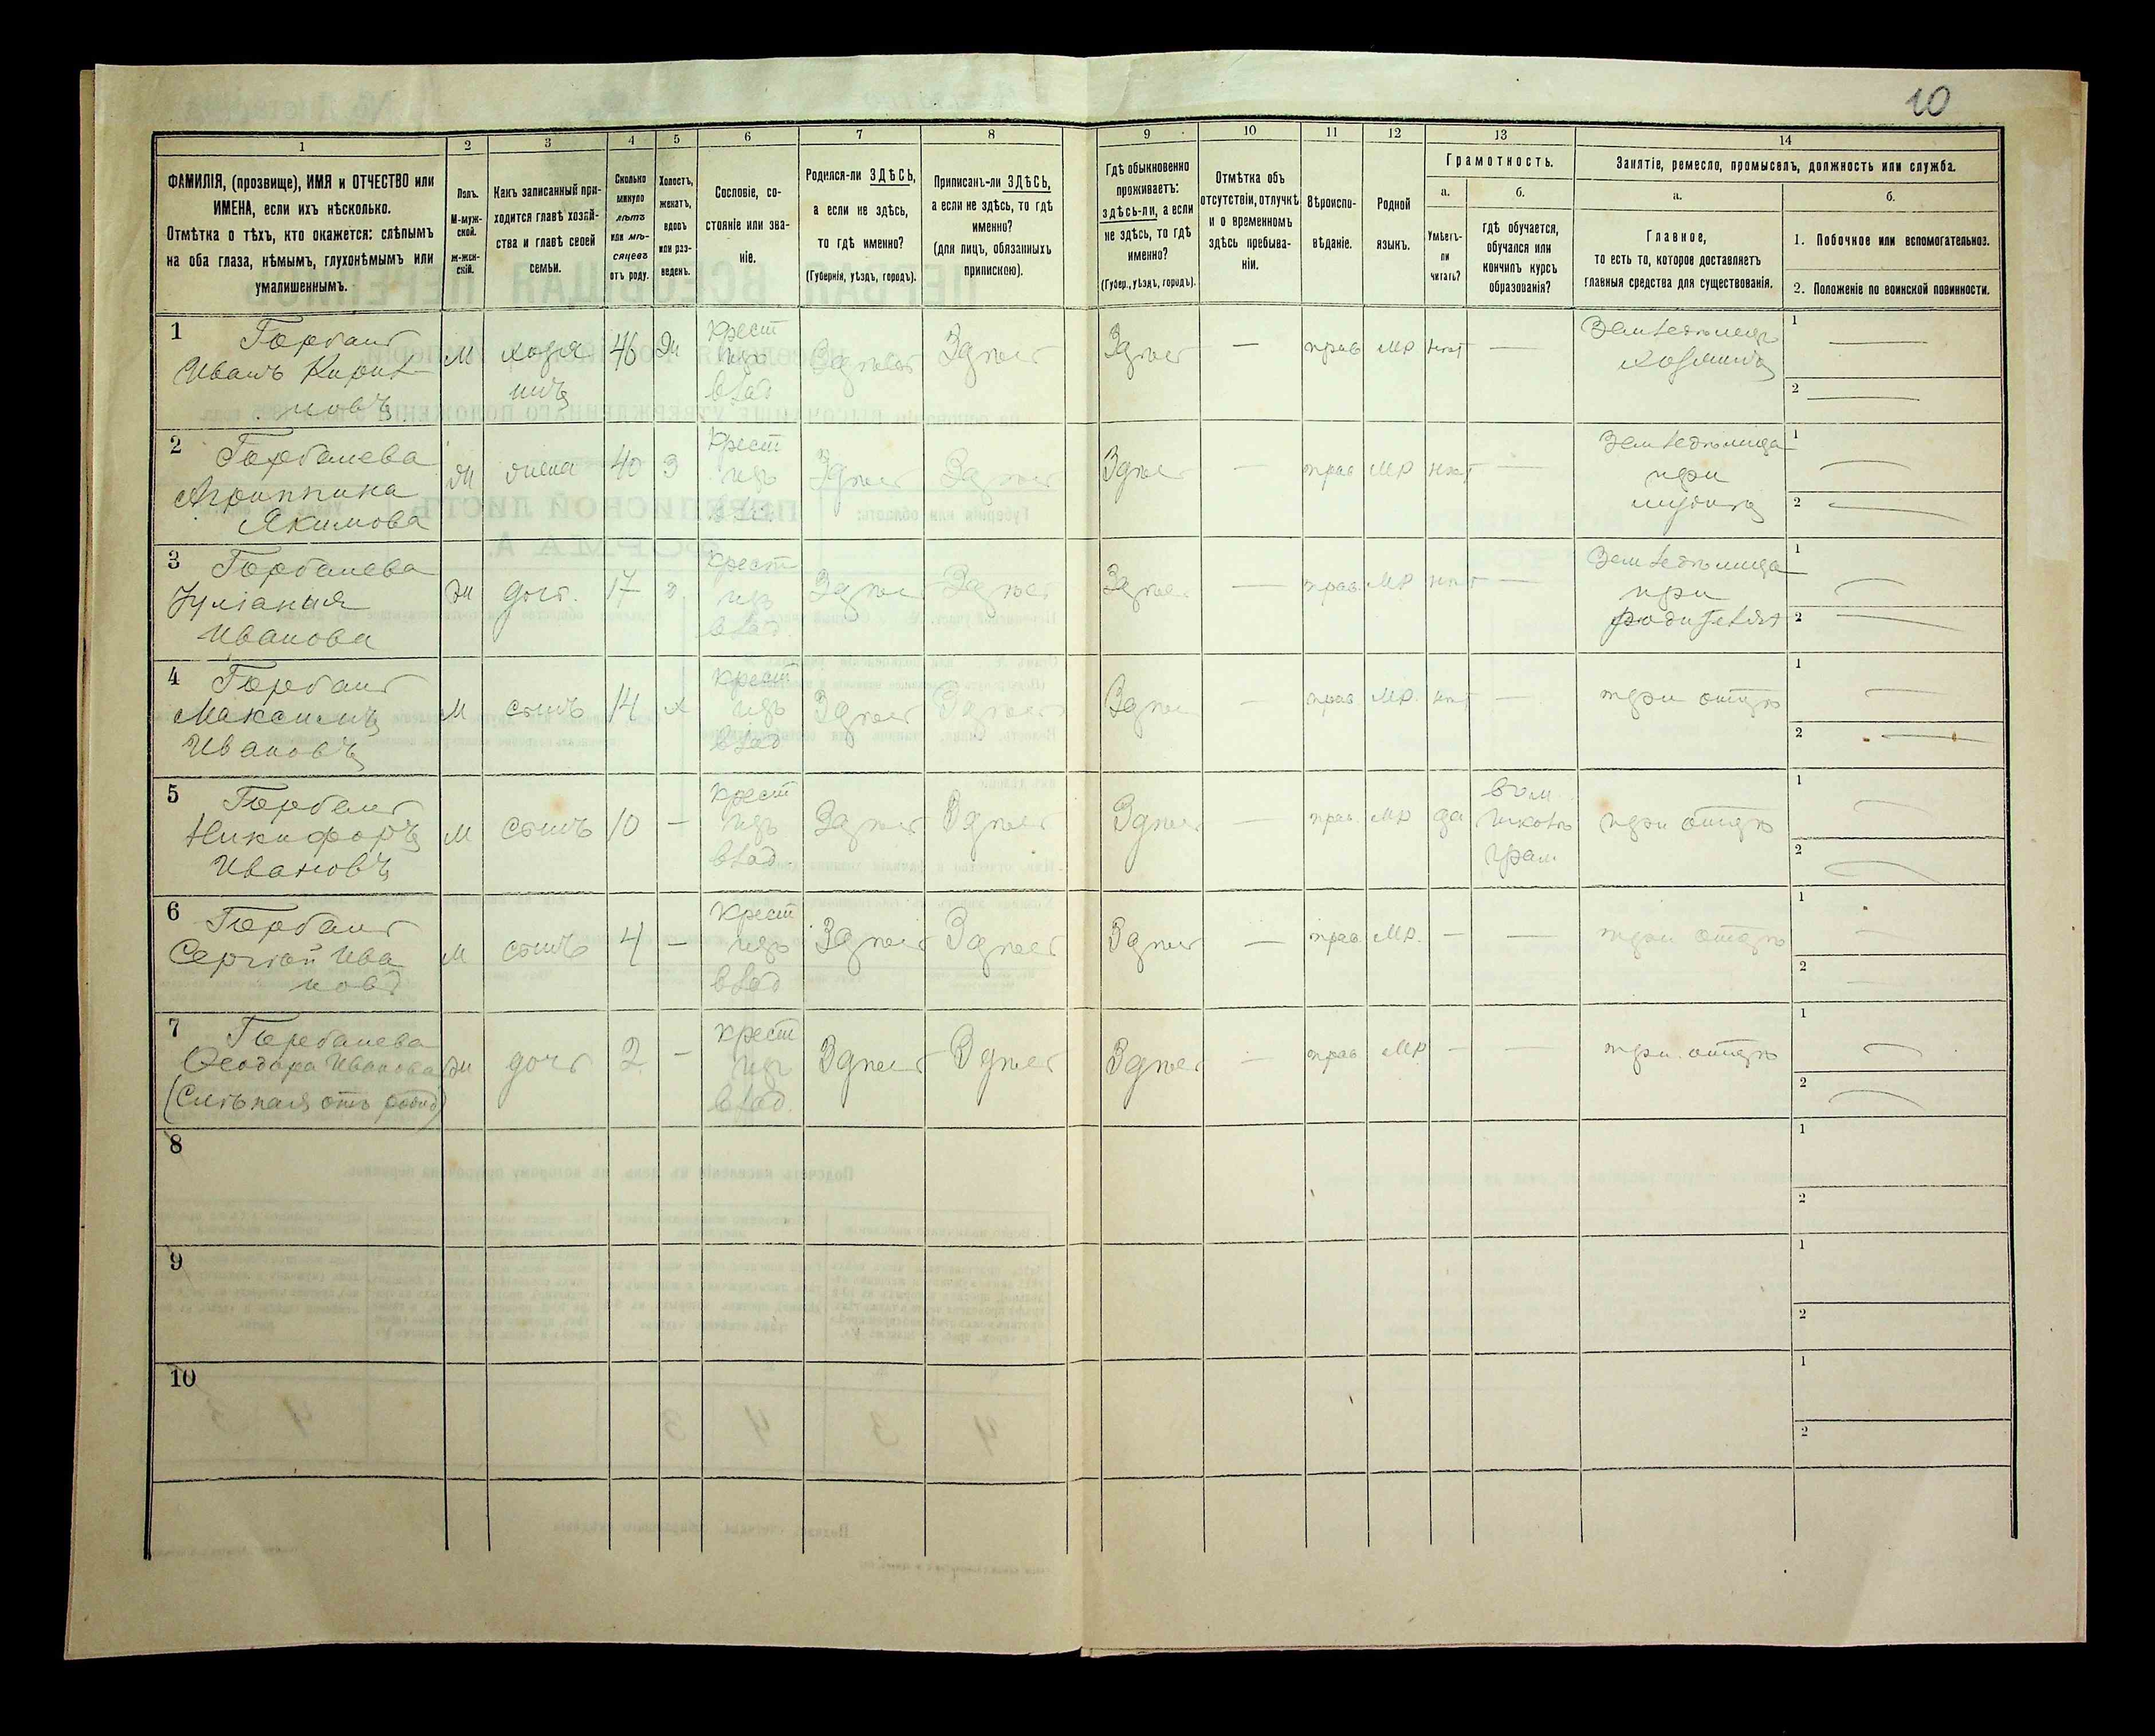 10
1
2
3
4
5
6
7
8
9
10
11
12
13
14
ФАМИЛІЯ, (прозвище), ИМЯ и ОТЧЕСТВО или
ИМЕНА, если ихъ нѣсколько.
Отмѣтка о тѣхъ, кто окажется: слѣпымъ
на оба глаза, нѣмымъ, глухонѣмымъ или
умалишеннымъ.
Полъ.
М-муж-
ской.
ж-жен-
скій.
Какъ записанный при-
ходится главѣ хозяй-
ства и главѣ своей
семьи.
Сколько
минуло
лѣтъ
или мѣ-
сяцевъ
отъ роду.
Холостъ,
женатъ,
вдовъ
или раз-
веденъ.
Сословіе, со-
стояніе или зва-
ніе.
Родился-ли ЗДѢСЬ,
а если не здѣсь,
то гдѣ именно?
(Губернія, уѣздъ, городъ).
Приписанъ-ли ЗДѢСЬ,
а если не здѣсь, то гдѣ
именно?
(для лицъ, обязанныхъ
припискою).
Гдѣ обыкновенно
проживаетъ:
здѣсь-ли, а если
не здѣсь, то гдѣ
именно?
(Губер., уѣздъ, городъ).
Отмѣтка объ
отсутствіи, отлучкѣ
и о временномъ
здѣсь пребыва-
ніи.
Вѣроиспо-
вѣданіе.
Родной
языкъ.
Грамотность.
а.
б.
Умѣетъ-
ли
читать?
гдѣ обучается,
обучался или
кончилъ курсъ
образованія?
Занятіе, ремесло, промыселъ, должность или служба.
а.
б.
Главное,
то есть то, которое доставляетъ
главныя средства для существованія.
1. Побочное или вспомогательное.
2. Положеніе по воинской повинности.
1
Иванъ Кирил-
новъ
М
хозя
инъ
46
Жн
крест
изъ
влад
Здѣсь
Здѣсь
Здѣсь
—
прав
МР
нѣт
—
Земледѣлецъ
хозяинъ
1
2
2
Агриппина
Якимова
Ж
жена
40
З
крест
изъ
Здѣсь
Здѣсь
Здѣсь
—
прав
МР
нѣт
—
Земледѣлица
при
мужѣ
1
2
3
Иванова
Ж
доч.
17
крест
изъ
влад
Здѣсь
Здѣсь
Здѣсь
—
прав.
МР
нѣт
—
Земледѣлица
при
родителях
1
2
4
Максимъ
Ивановъ
М
сынъ
14
х
крест
изъ
влад
Здѣсь
Здѣсь
Здѣсь
—
прав
МР.
нѣт
—
при отцѣ
1
2
5
Никифоръ
Ивановъ
М
сынъ
10
—
крест
изъ
влад.
Здѣсь
Здѣсь
Здѣсь
—
прав.
МР
да
школѣ
грам.
при отцѣ
1
2
6
Сергѣй Ива
новъ
М
сынъ
4
—
крест
изъ
влад
Здѣсь
Здѣсь
Здѣсь
—
прав.
МР.
—
—
при отцѣ
1
2
7
Ѳеодора Иванова
(Слѣпая отъ рожд)
Ж
доч
2
—
крест
изъ
влад.
Здѣсь
Здѣсь
Здѣсь
—
прав
МР
—
—
при отцѣ
1
2
8
1
2
9
1
2
10
1
2